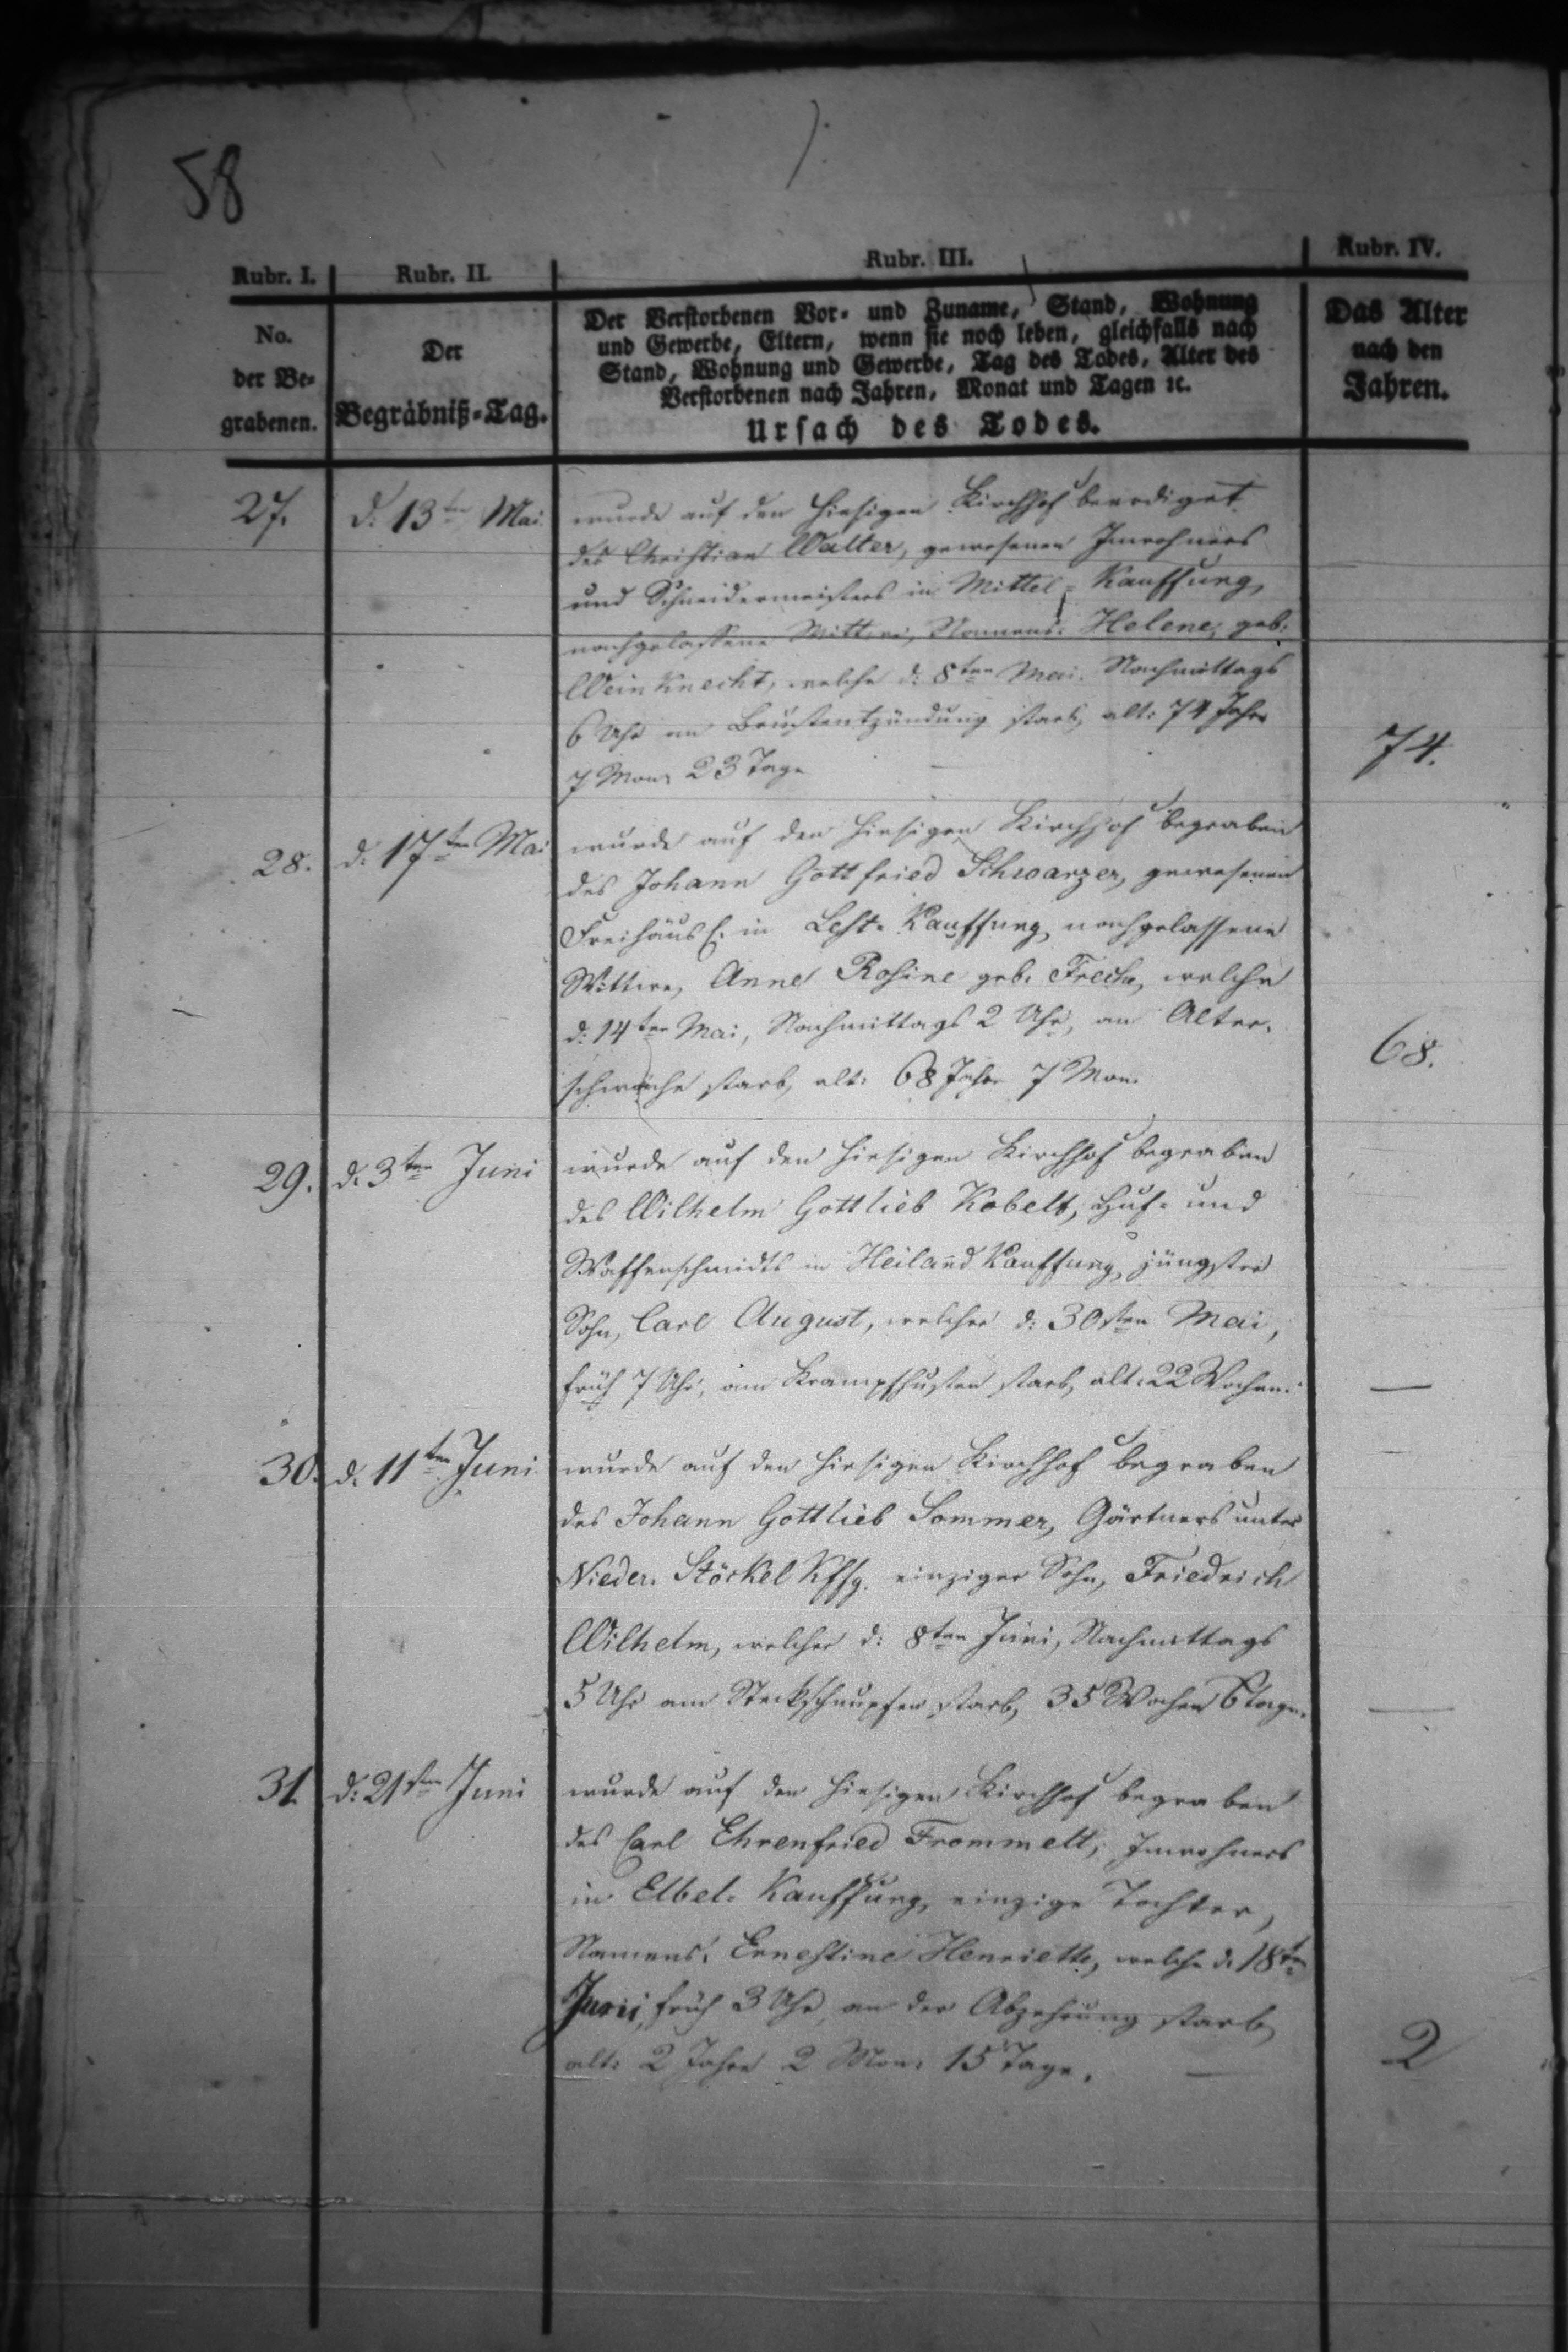 58
Rubr. I.
Rubr. II.
Rubr. III.
Rubr. IV.
No.
der Be-
grabenen.
Der
Begräbniß-Tag.
Der Verstorbenen Vor- und Zuname, Stand, Wohnung
und Gewerbe, Eltern, wenn sie noch leben, gleichfalls nach
Stand, Wohnung und Gewerbe, Tag des Todes, Alter des
Verstorbenen nach Jahren, Monat und Tagen ꝛc.
Ursach des Todes.
Das Alter
nach den
Jahren.
27.
d: 13ten Mai.
wurde auf den hiesigen Kirchhof beerdiget
des Christian Walter, gewesenen Inwohners
und Schneidermeisters in Mittel-Kauffung,
nachgelassene Wittwe, Namens: Helene, geb:
Weinknecht, welche d: 8ten Mai. Nachmittags
6 Uhr an Brustentzündung starb, alt: 74 Jahre
7 Mon: 23 Tage
74.
28.
d. 17ten Mai
wurde auf den hiesigen Kirchhof begraben
des Johann Gottfried Schwarzer, gewesenen
Freihäusl. in Lest-Kauffung, nachgelassene
Wittwe, Anne Rosine geb. Freche, welche
d: 14ten Mai, Nachmittags 2 Uhr, an Alter-
schwäche starb, alt: 68 Jahre 7 Mon.
68.
29.
d. 3ten Juni
wurde auf den hiesigen Kirchhof begraben
des Wilhelm Gottlieb Kobelt, Huf- und
Waffenschmidts in Heiland Kauffung, jüngster
Sohn, Carl August, welcher d: 30sten Mai,
früh 7 Uhr, am Krampfhusten starb, alt: 22 Wochen.
—
30.
d. 11ten Juni
wurde auf den hiesigen Kirchhof begraben
des Johann Gottlieb Sommer, Gärtners unter
Nieder-Stöckel Kffg. einziger Sohn, Friedrich
Wilhelm, welcher d: 8ten Juni, Nachmittags
5 Uhr am Steckschnupfen starb, 35 Wochen 6 Tage.
—
31.
d: 21sten Juni
wurde auf den hiesigen Kirchhof begraben
des Carl Ehrenfried Frommelt, Inwohners
in Elbel-Kauffung, einzige Tochter,
Namens: Ernestine Henriette, welche d. 18ten
Juni, früh 3 Uhr, an der Abzehrung starb,
alt: 2 Jahre 2 Mon: 15 Tage. —
2